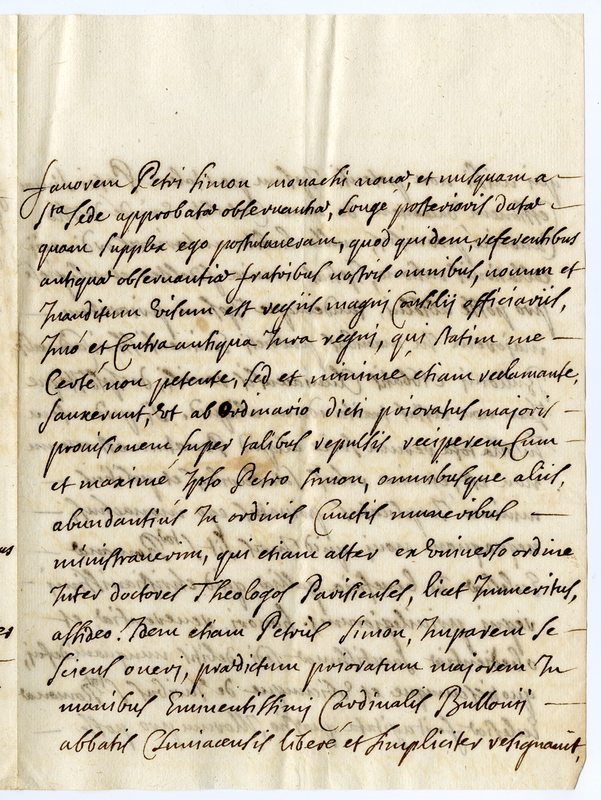 favorem Petri Simon monachi novæ, et nusquam a
Sta Sede approbatæ observantiæ, Longe posterioris datæ
quam supplex ego postulaveram, quod quidem, referentibus
antiquæ observantiæ fratribus nostris omnibus, novum et
Inauditum visum est regiis magni Consilij officiariis,
Imó et Contra antiqua Jura regni, qui statim me
Certé non petente, sed et minimé etiam reclamante,
sanxerunt, ut ab Ordinario dicti prioratus majoris
provisionem super talibus repulsis reciperem, Cum
et maximé Ipso Petro Simon, omnibusque aliis,
abundantiús In ordinis Cunctis muneribus
ministraverim, qui etiam alter ex Universo ordine
Inter doctores Theologos Parisienses, licet Immeritus,
assideo. Idem etiam Petrus Simon, Imparem se
sciens oneri, prædictum prioratum majorem In
manibus Eminentissimi Cardinalis Bullonii
abbatis Cluniacensis liberé et simpliciter resignavit,